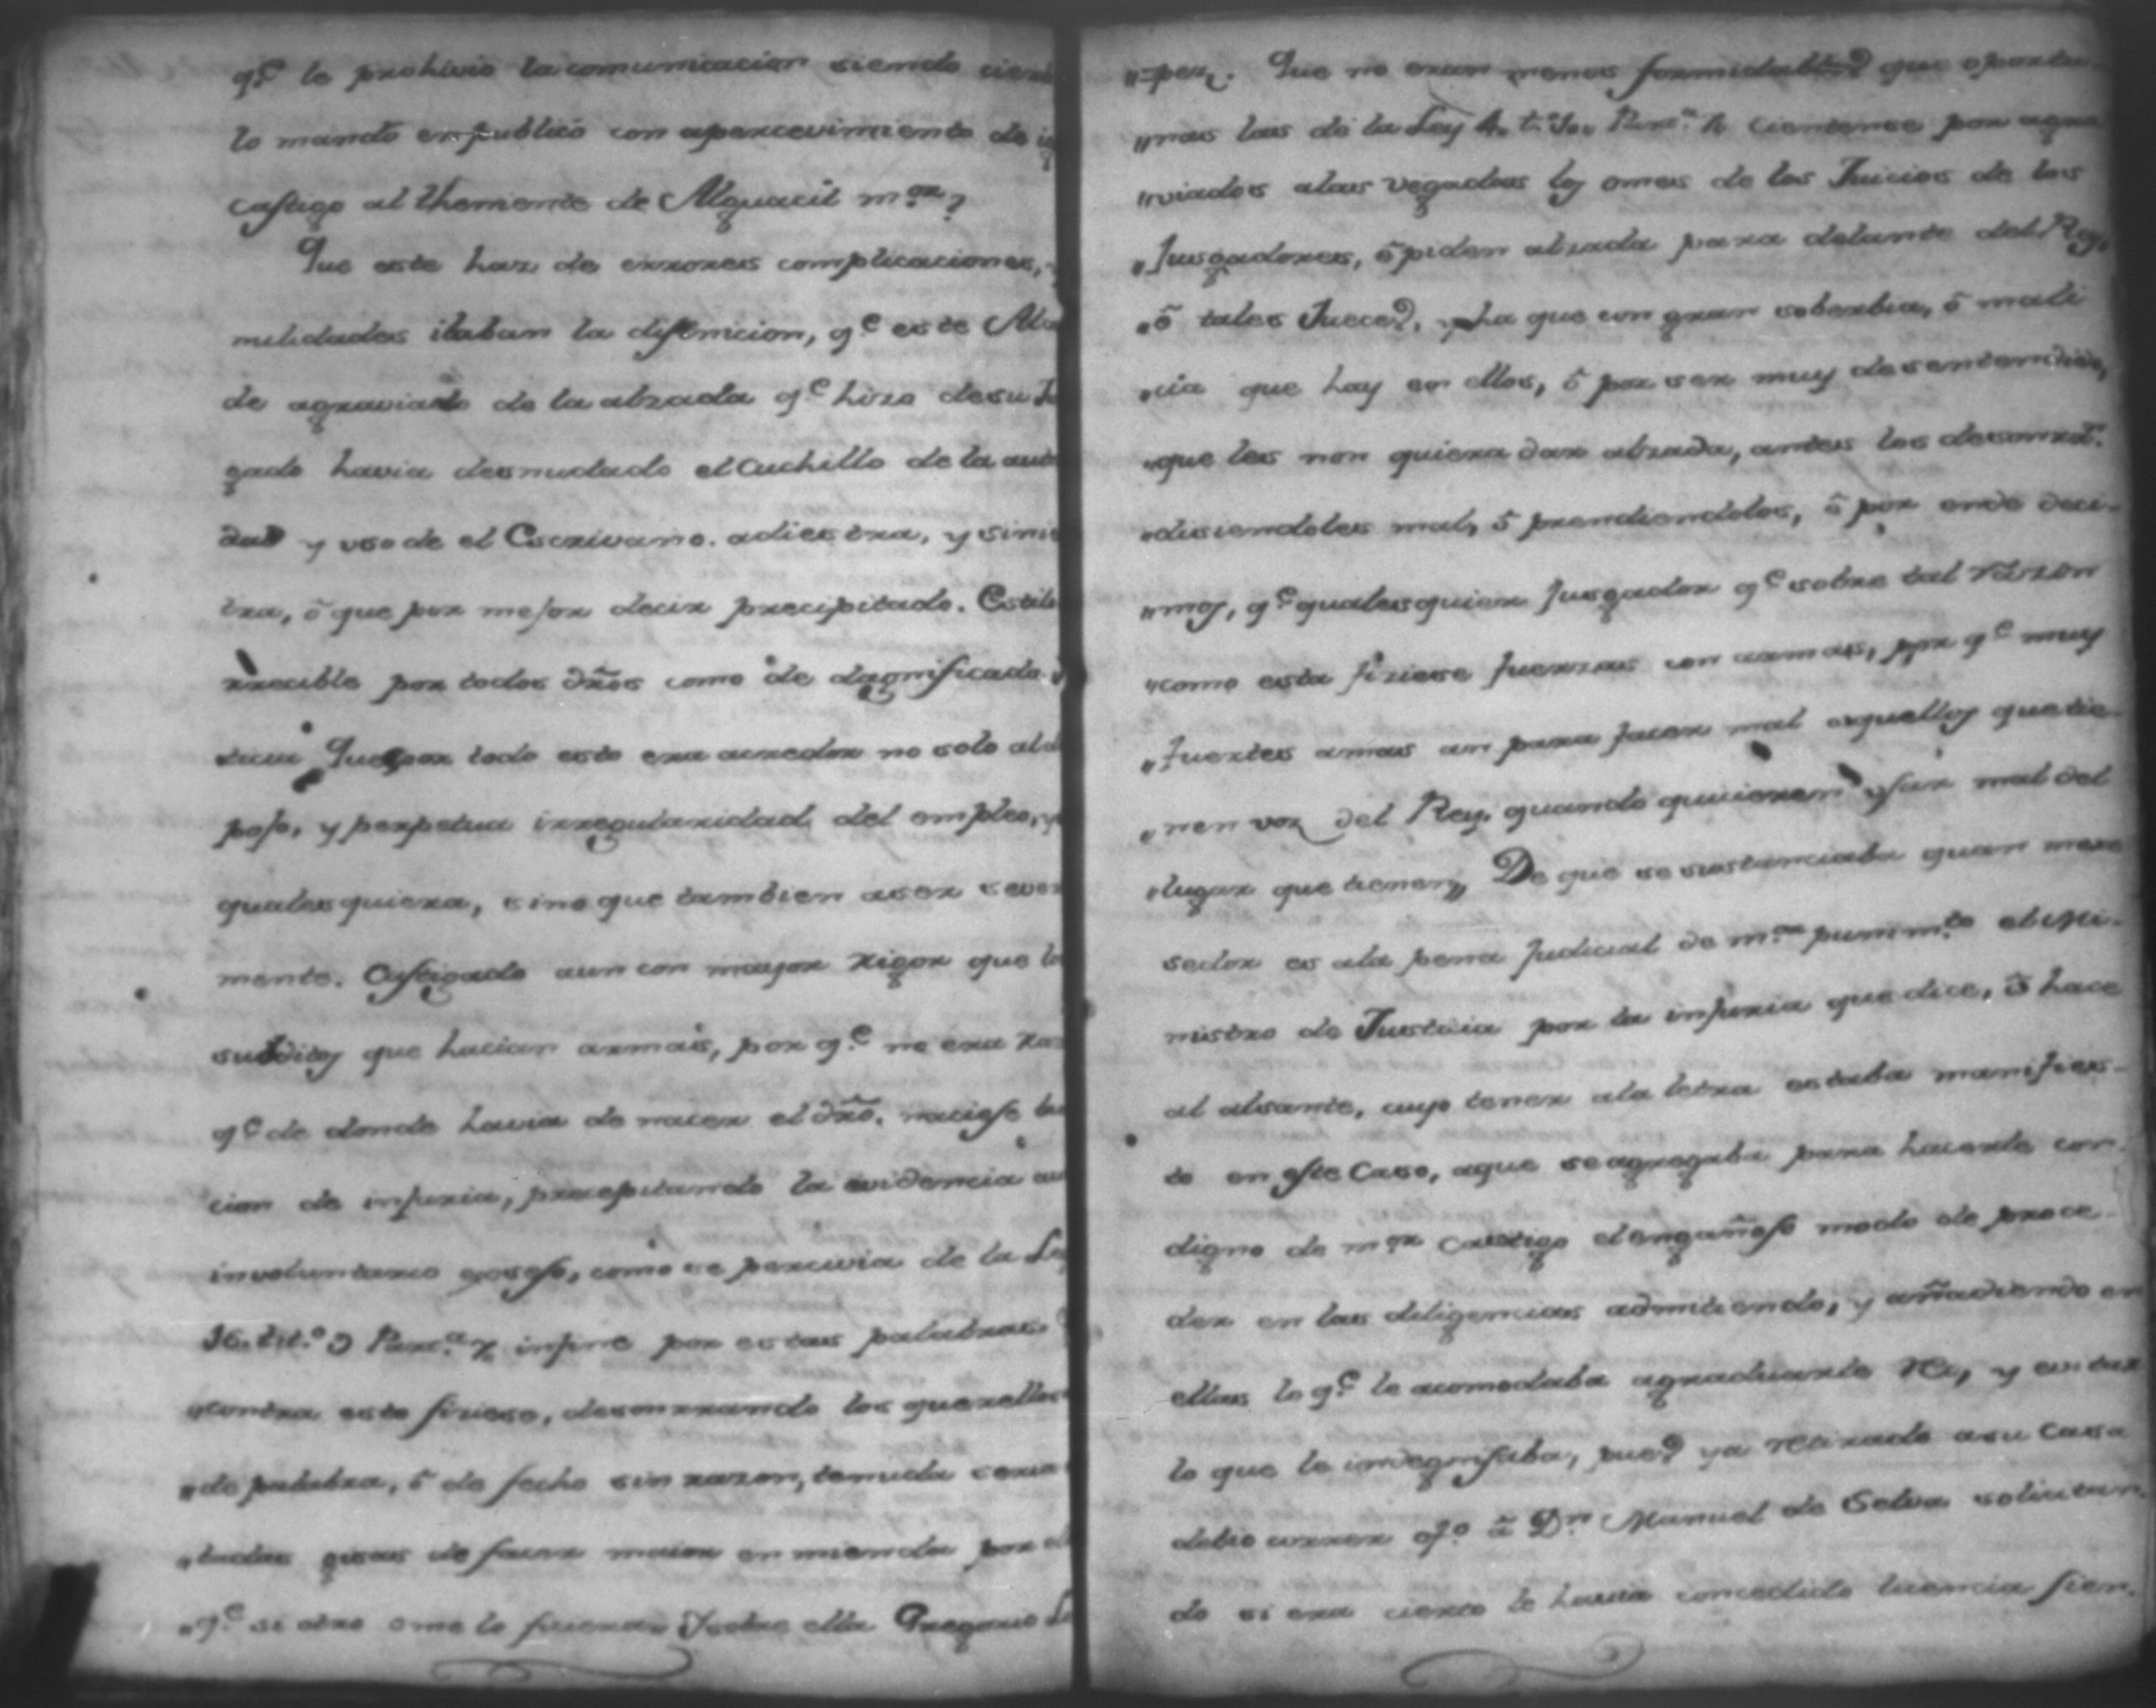 q.e le prohivio la comunicacion siendo cier
lo mando en publico con apercevimiento de
castigo al theniente de Alguacil m.or?
Que este haz de errores complicaciones,
nulidades la difinicion, q.e este Alca
de agraviado de la alzada q.e hizo de su Ju
gado havia desnudado el Cuchillo de la auto
dad y uso de el Escrivano. adiestra, y sinies
tra, ó que por mejor decir precipitado. Estilo
por todos dr̃os como de dagnificado
Que por todo esto era acredor no solo al de
poso, y perpetua irregularidad del empleo, y
qualesquiera, sino que tambien a ser sever
mente. Castigado aun con mayor rigor que lo
subditos que hacian armas, por q.e no era raz
q.e de donde havia de nacer el dr̃o. naciese la
cion de injuria, precipitando la evidencia
involuntario como se percivia de la Ley
16. tit.o 9 Part.a 7 infine por estas palabras
"contra esto ficiese, desonrrando los querellos
"de palabra, ó de fecho sin razon, tenuda seria
"todas guisas de facer maior enmienda por
"q.e si otro ome lo ficiera Y sobre ella Gregorio Lo
"=pez. Que no eran menos formidables que oportu-
"nas las de la Ley 4. t.o Part.a Cientense por agra
"viados a las vegadas los omes de los Juicios de los
"Jusgadores, ó piden alzada para delante del Rey,
"ó tales Jueces, y ha que con gran soberbia, ó mali
"cia que hay en ellos, ó por ser muy desentendidos,
"que les non quieren dar alzada, antes los desonrrã.
"disiendoles mal, ó prendiendolos, ó por ende deci-
"mos, q.e qualesquier Jusgador q.e sobre tal razon
"como esta ficiese fuerzas con armas, por q.e muy
"fuertes armas an para facer mal aquellos que tie-
"nen voz del Rey. quando quisieren usar mal del
"lugar que tienen" De que se sustanciaba quan mere
sedor es a la pena Judicial de m.or punim.to el Mi-
nistro de Justicia por la injuria que dice, ó hace
al alsante, cuyo tenor a la letra estaba manifies-
to en este Caso, a que se agregaba para hacerle con-
digno de m.or castigo el engañoso modo de proce-
der en las diligencias admitiendo, y añadiendo en
ellas lo q.e le acomodaba agraduarle Reo, y evitar
lo que le indegnisaba, pues ya retirado a su Casa
debio correr of.o á D.n Manuel de Selva solicitan-
do si era cierto le havia concedido licencia sien-